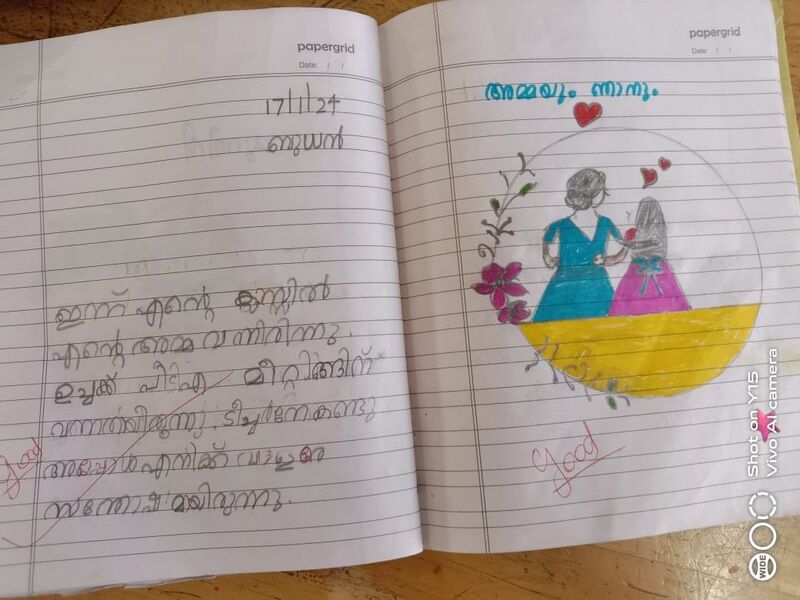 papergrid
Date: / /
17/1/24
ബുധൻ
ഇന്ന് എന്റെ ക്ലസ്സിൽ
എന്റെ അമ്മ വന്നിരിന്നു.
ഉച്ചക്ക് പീടിഎ മീറ്റിങ്ങിന്
വന്നതയിരുന്നു. ടീച്ചർനേ കണ്ടു
അപ്പോൾ എനിക്ക് വളരെ
സന്തോഷമയിരുന്നു.
Good
papergrid
Date: / /
അമ്മയും ന്നാനും
Good
Shot on Y15
Vivo AI camera
WIDE